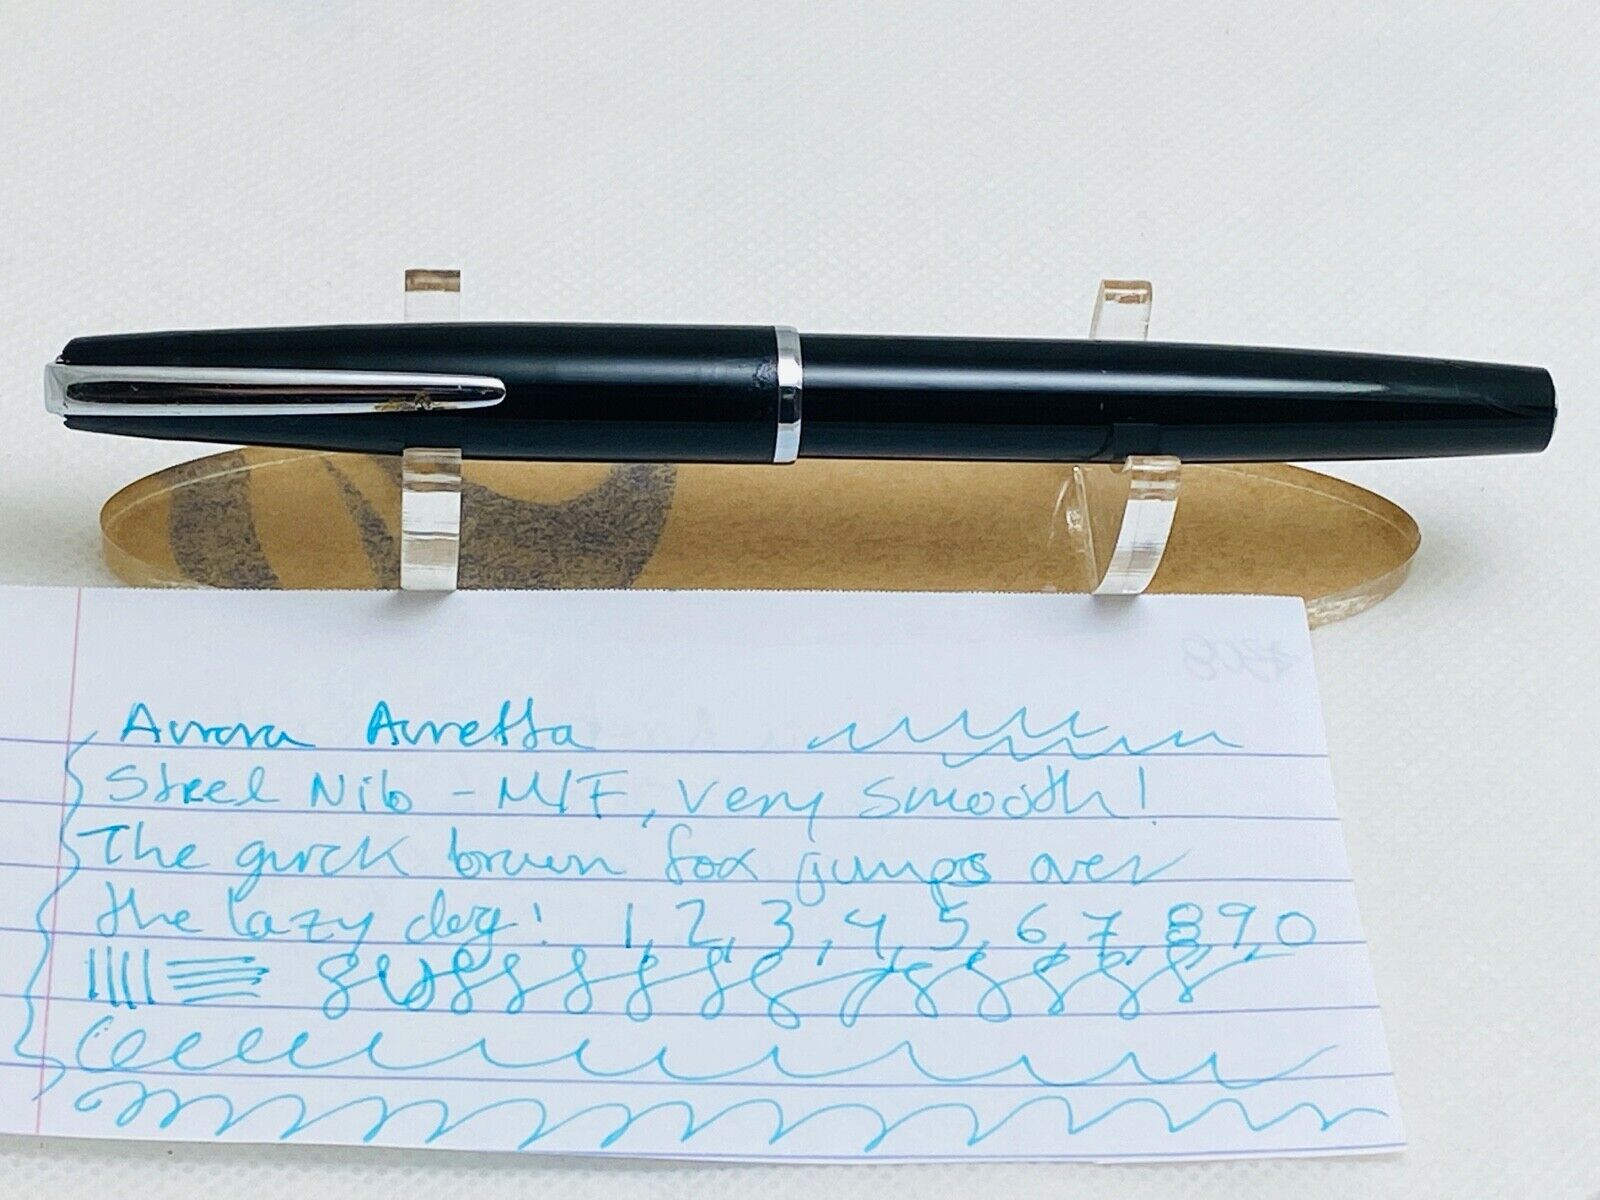 Aurora Auretta
Steel Nib - M/F, Very Smooth!
The quick brown fox jumps over
the lazy dog! 1, 2, 3, 4, 5, 6, 7, 8, 9, 0